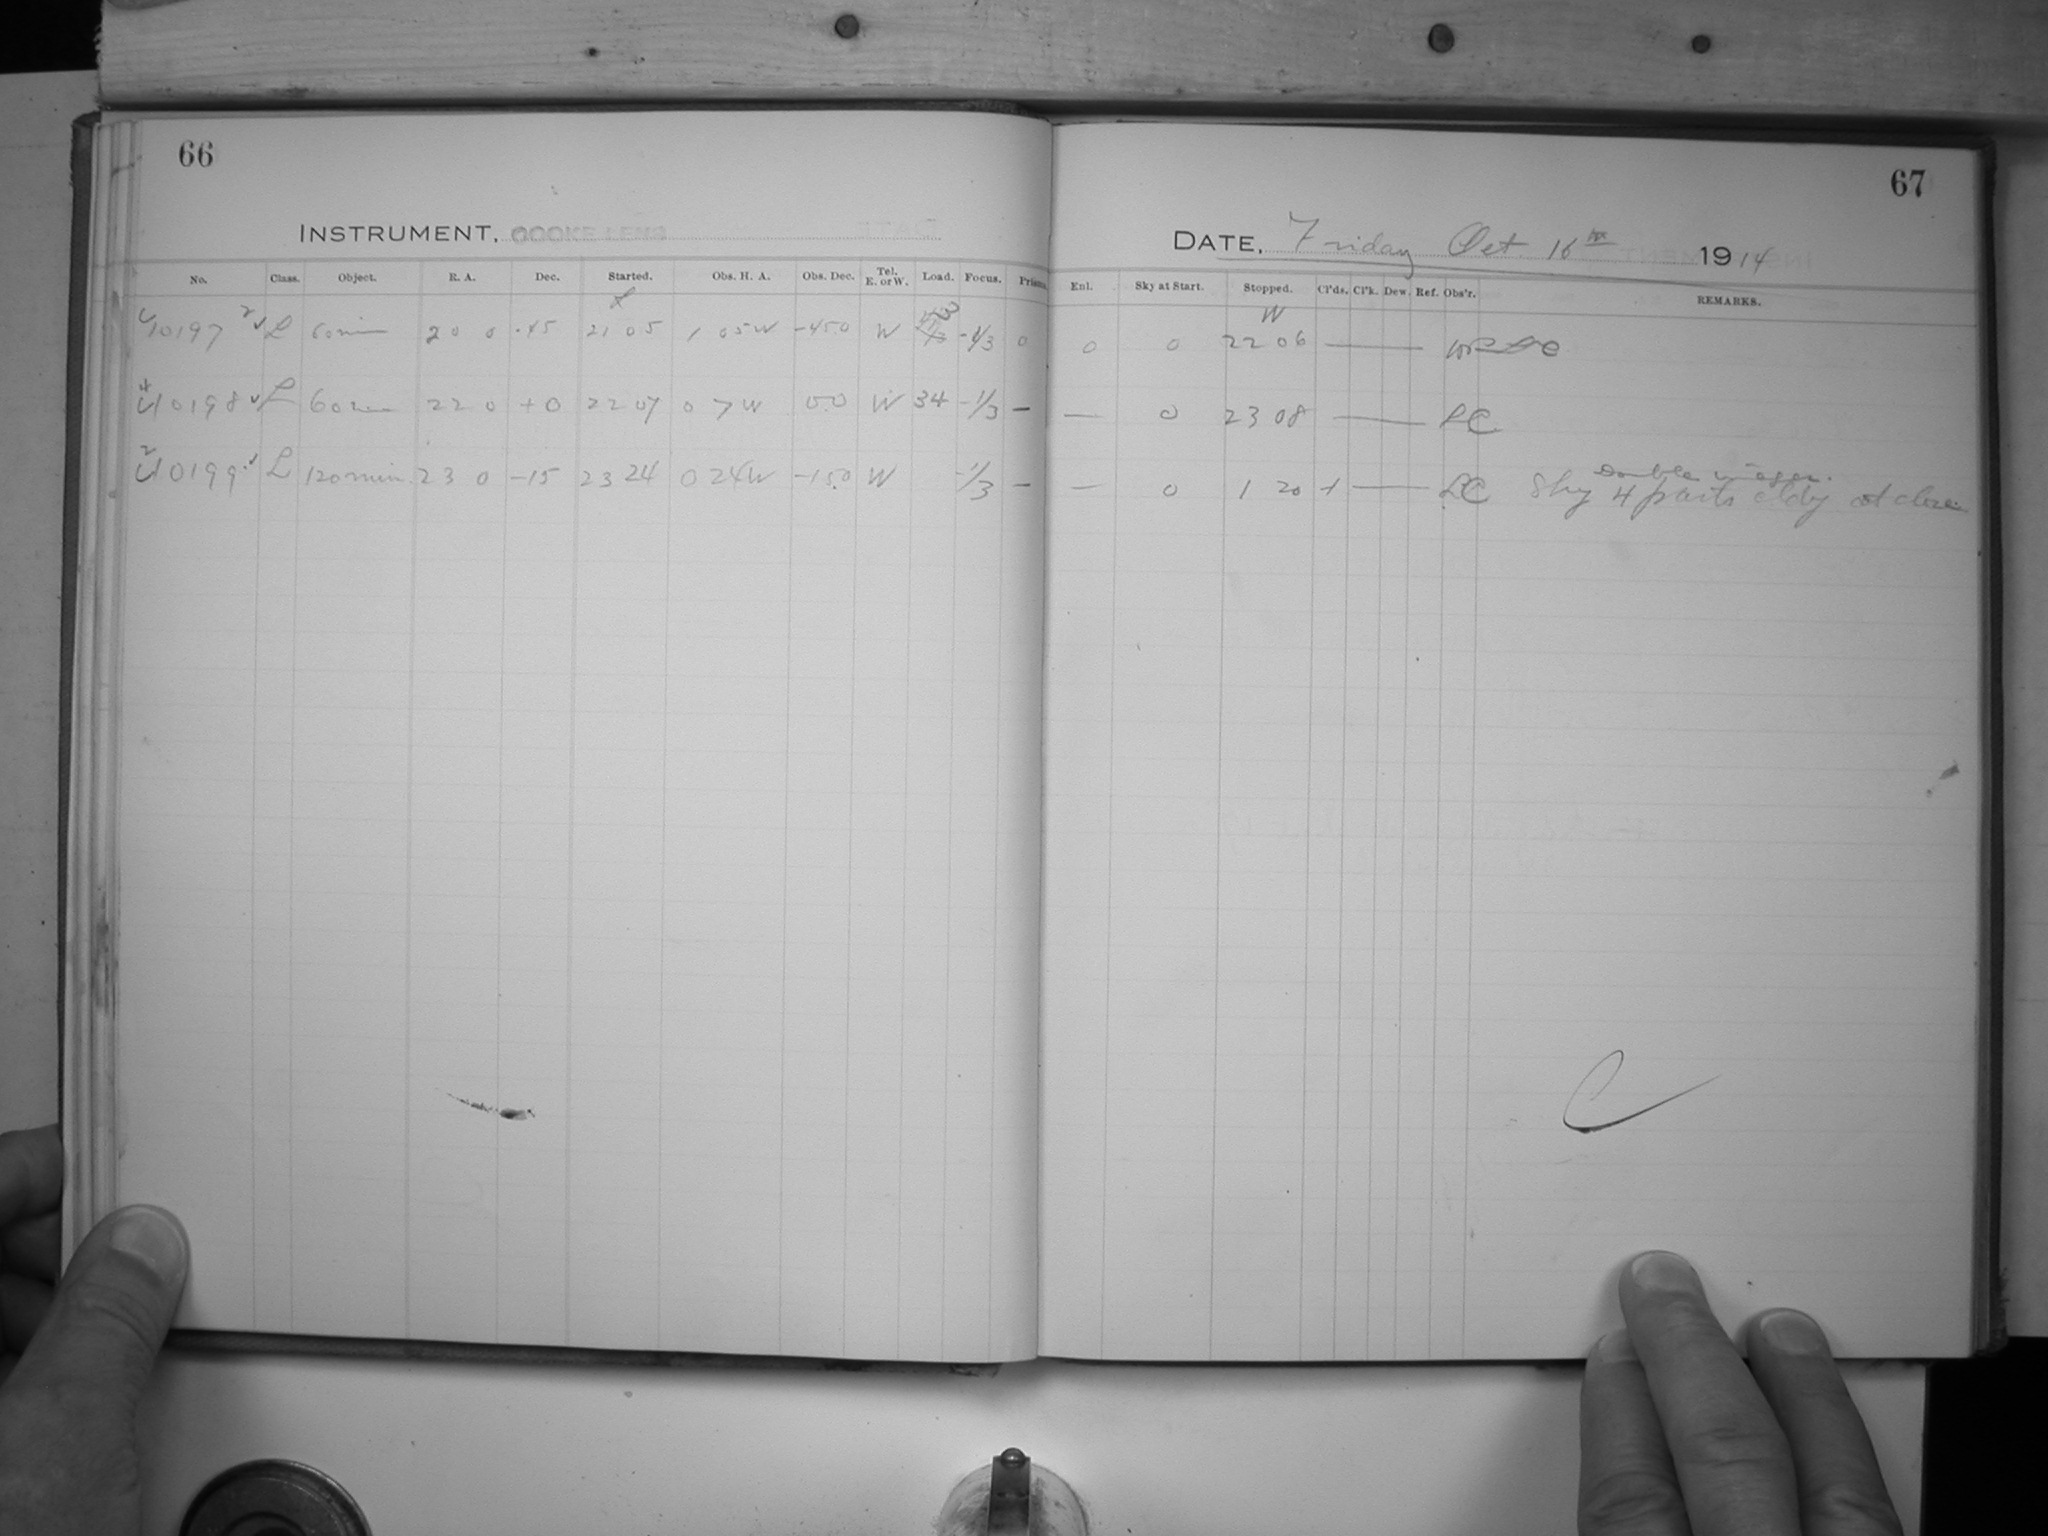 66
INSTRUMENT, COOKE LENS
No. Class. Object. R. A. Dec. Started. Obs. H. A. Obs. Dec. Tel. E. or W. Load. Focus. Prism.
10197 L 60 min 20 0 -45 21 05 1 05 W -45.0 W -1/3 0
10198 L 60 min 22 0 +0 22 07 0 7 W 0.0 W 34 -1/3 —
10199 L 120 min 23 0 -15 23 24 0 24 W -15.0 W -1/3 —
67
DATE, Friday Oct. 16th 1914
Enl. Sky at Start. Stopped. Cl'ds. Cl'k. Dew. Ref. Obs'r. REMARKS.
W
0 0 22 06 —
— 0 23 08 — LC
Double images.
— 0 1 20 + — LC Sky 4 parts cldy at close